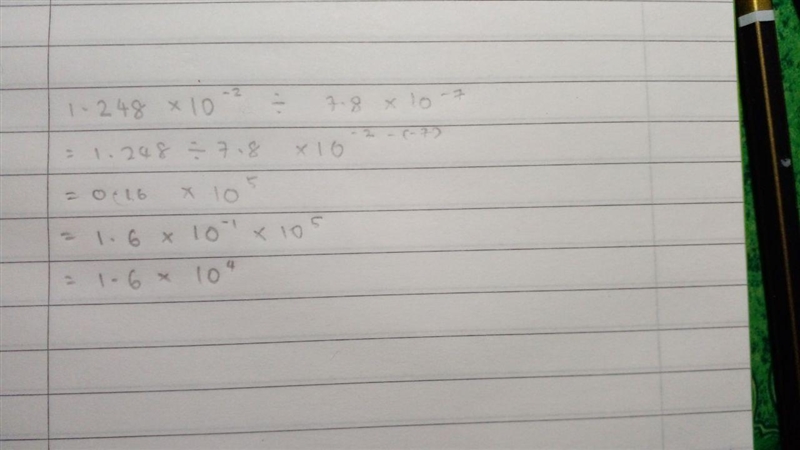 1.248 × 10⁻² ÷ 7.8 × 10⁻⁷
= 1.248 ÷ 7.8 × 10⁻²⁻⁽⁻⁷⁾
= 0.16 × 10⁵
= 1.6 × 10⁻¹ × 10⁵
= 1.6 × 10⁴